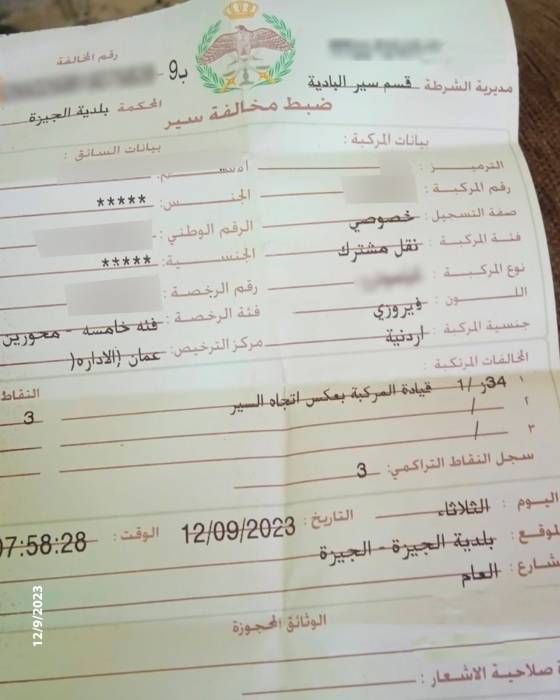 رقم المخالفة
ب9-
مديرية الشرطة قسم سير البادية
ضبط مخالفة سير
المحكمة بلدية الجيزة
بيانات المركبة :
بيانات السائق :
الترميز :
رقم المركبة :
الجنس : *****
صفة التسجيل : خصوصي
الرقم الوطني :
فئة المركبة : نقل مشترك
الجنسية : *****
نوع المركبة :
رقم الرخصة :
اللون : فيروزي
فئة الرخصة : فئه خامسه - محورين
جنسية المركبة : اردنية
مركز الترخيص : عمان (الاداره(
المخالفات المرتكبة :
النقاط
١ 34ر/1 قيادة المركبة بعكس اتجاه السير 3
٢ /
٣ /
سجل النقاط التراكمي : 3
اليوم : الثلاثاء التاريخ : 12/09/2023 الوقت : 07:58:28
لموقع : بلدية الجيزة - الجيزة
شارع : العام
الوثائق المحجوزة
ة صلاحية الاشعار :
12/9/2023